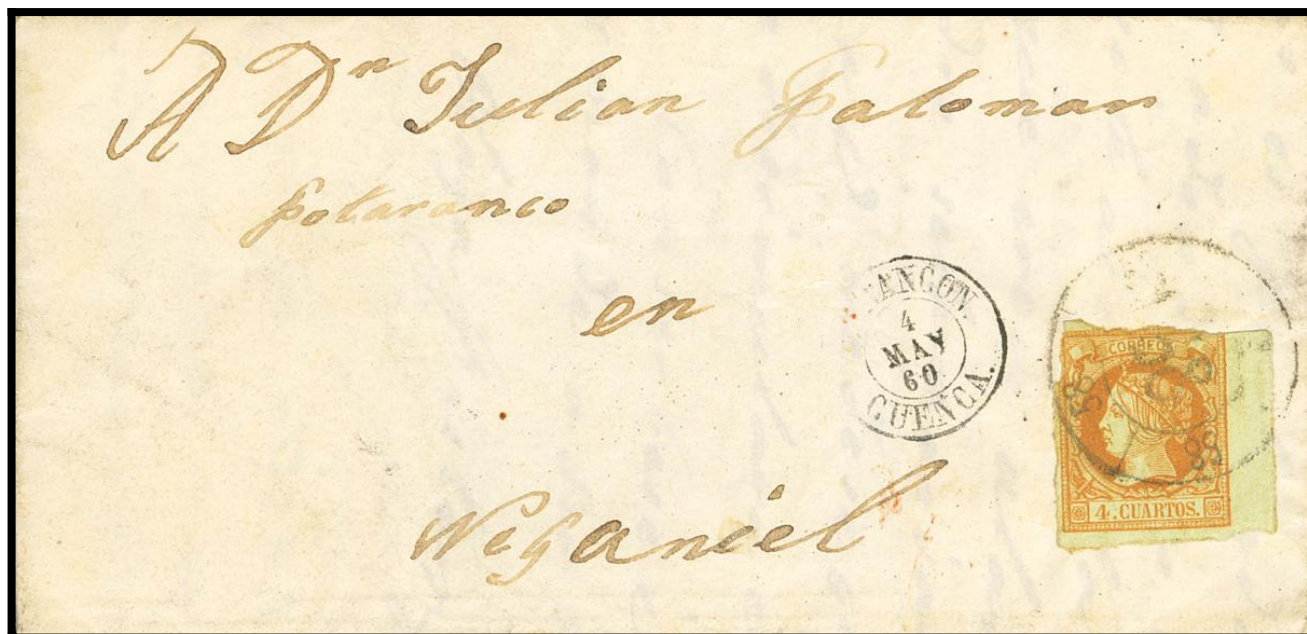 A Dn Julian Palomar
Potaranco
en
Neganiel
ANCON.
4
MAY
60
CUENCA.
CORREOS
58
58
4 CUARTOS.